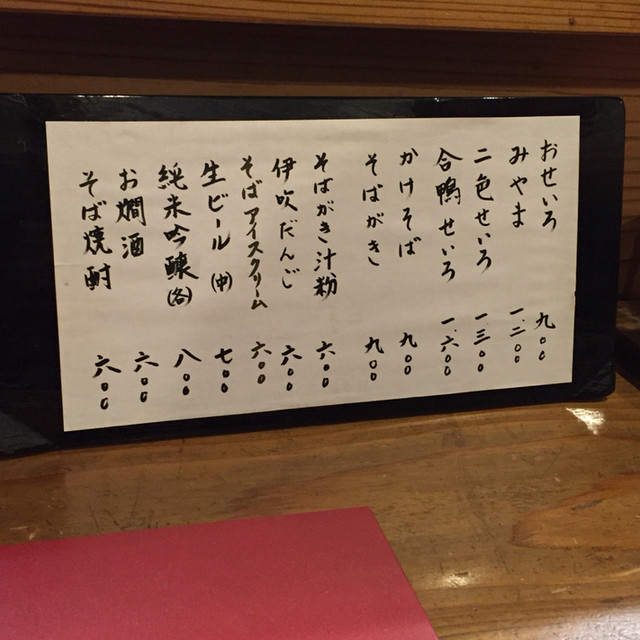 おせいろ 九〇〇
みやま 一、二〇〇
二色せいろ 一、三〇〇
合鴨せいろ 一、六〇〇
かけそば 九〇〇
そばがき 九〇〇
そばがき汁粉 六〇〇
伊吹だんご 六〇〇
そばアイスクリーム 六〇〇
生ビール(中) 七〇〇
純米吟醸(各) 八〇〇
お燗酒 六〇〇
そば焼酎 六〇〇